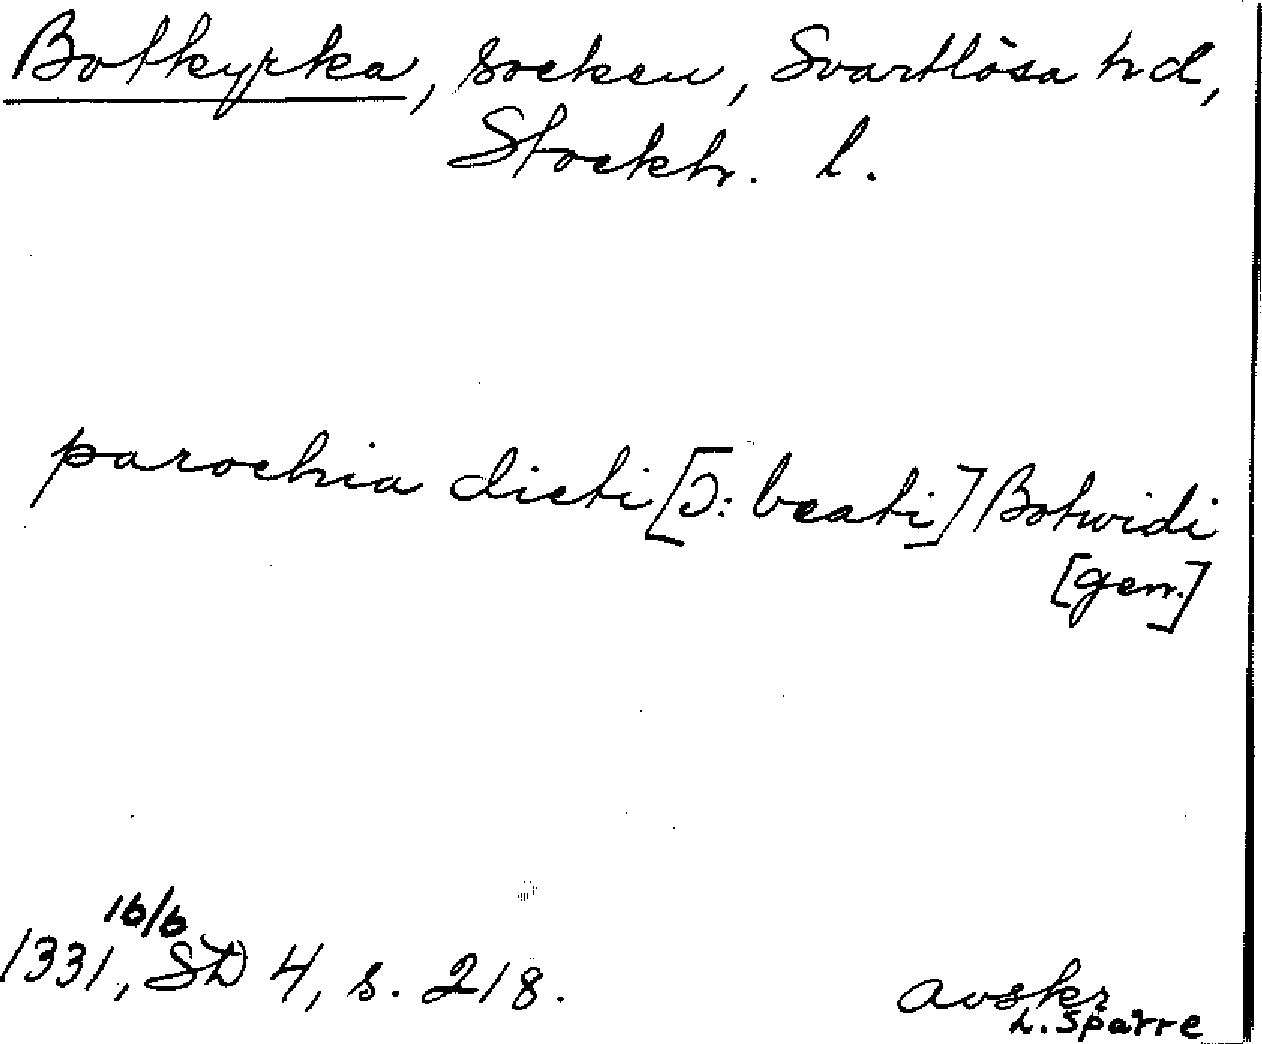 Botkyrka, socken, Svartlösa hd,
Stockh. l.
parochia dicti [ɔ: beati] Botwidi
[gen.]
16/6
1331, SD 4, s. 218.
avskr
L. Sparre